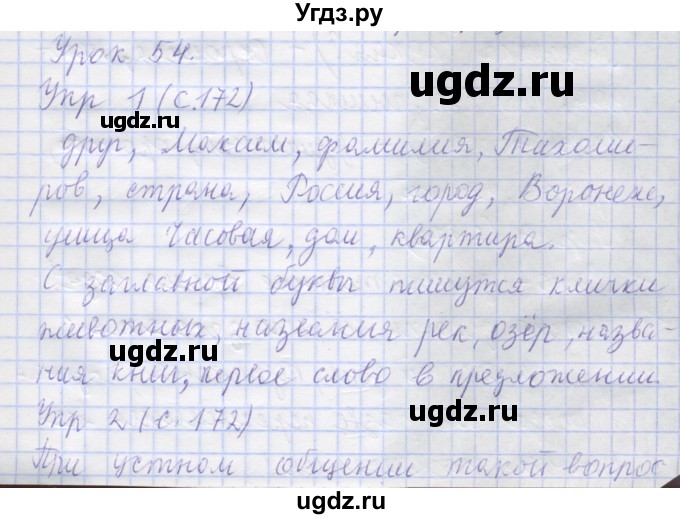 Угдз.ру
Урок 54.
ugdz.ru
Упр 1 (с. 172)
ugdz.ru
друг, Максим, фамилия, Тихоми-
ров, страна, Россия, город, Воронеж,
улица Часовая, дом, квартира.
ugdz.ru
С заглавной буквы пишутся клички
животных, названия рек, озёр, назва-
ugdz.ru
ния книг, первое слово в предложении.
Упр 2 (с. 172)
ugdz.ru
При устном общении такой вопрос
ugdz.ru